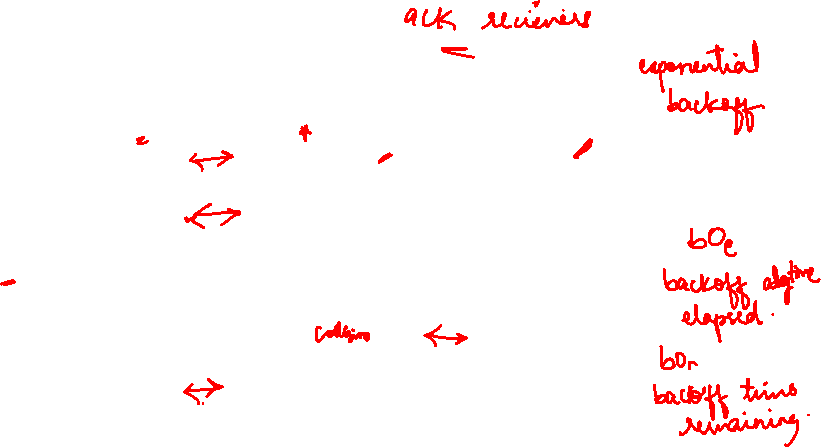 ack recieners
exponential
backoff
bOe
backoff
elapsed.
collision
bOr
backoff time
remaining.